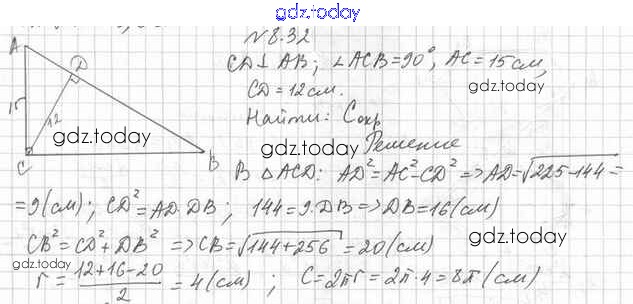 gdz.today
№8.32
A
D
CD⊥AB; ∠ACB=90°, AC=15см,
15
CD=12см.
12
Найти: Cокр
gdz.today
gdz.today
gdz.today
Решение
C
B
В △ACD: AD²=AC²-CD² => AD=√225-144=
=9(см); CD²=AD·DB; 144=9·DB=>DB=16(см)
CB²=CD²+DB² => CB=√144+256=20(см)
gdz.today
gdz.today
r=12+16-20/2=4(см); C=2πr=2π·4=8π(см)